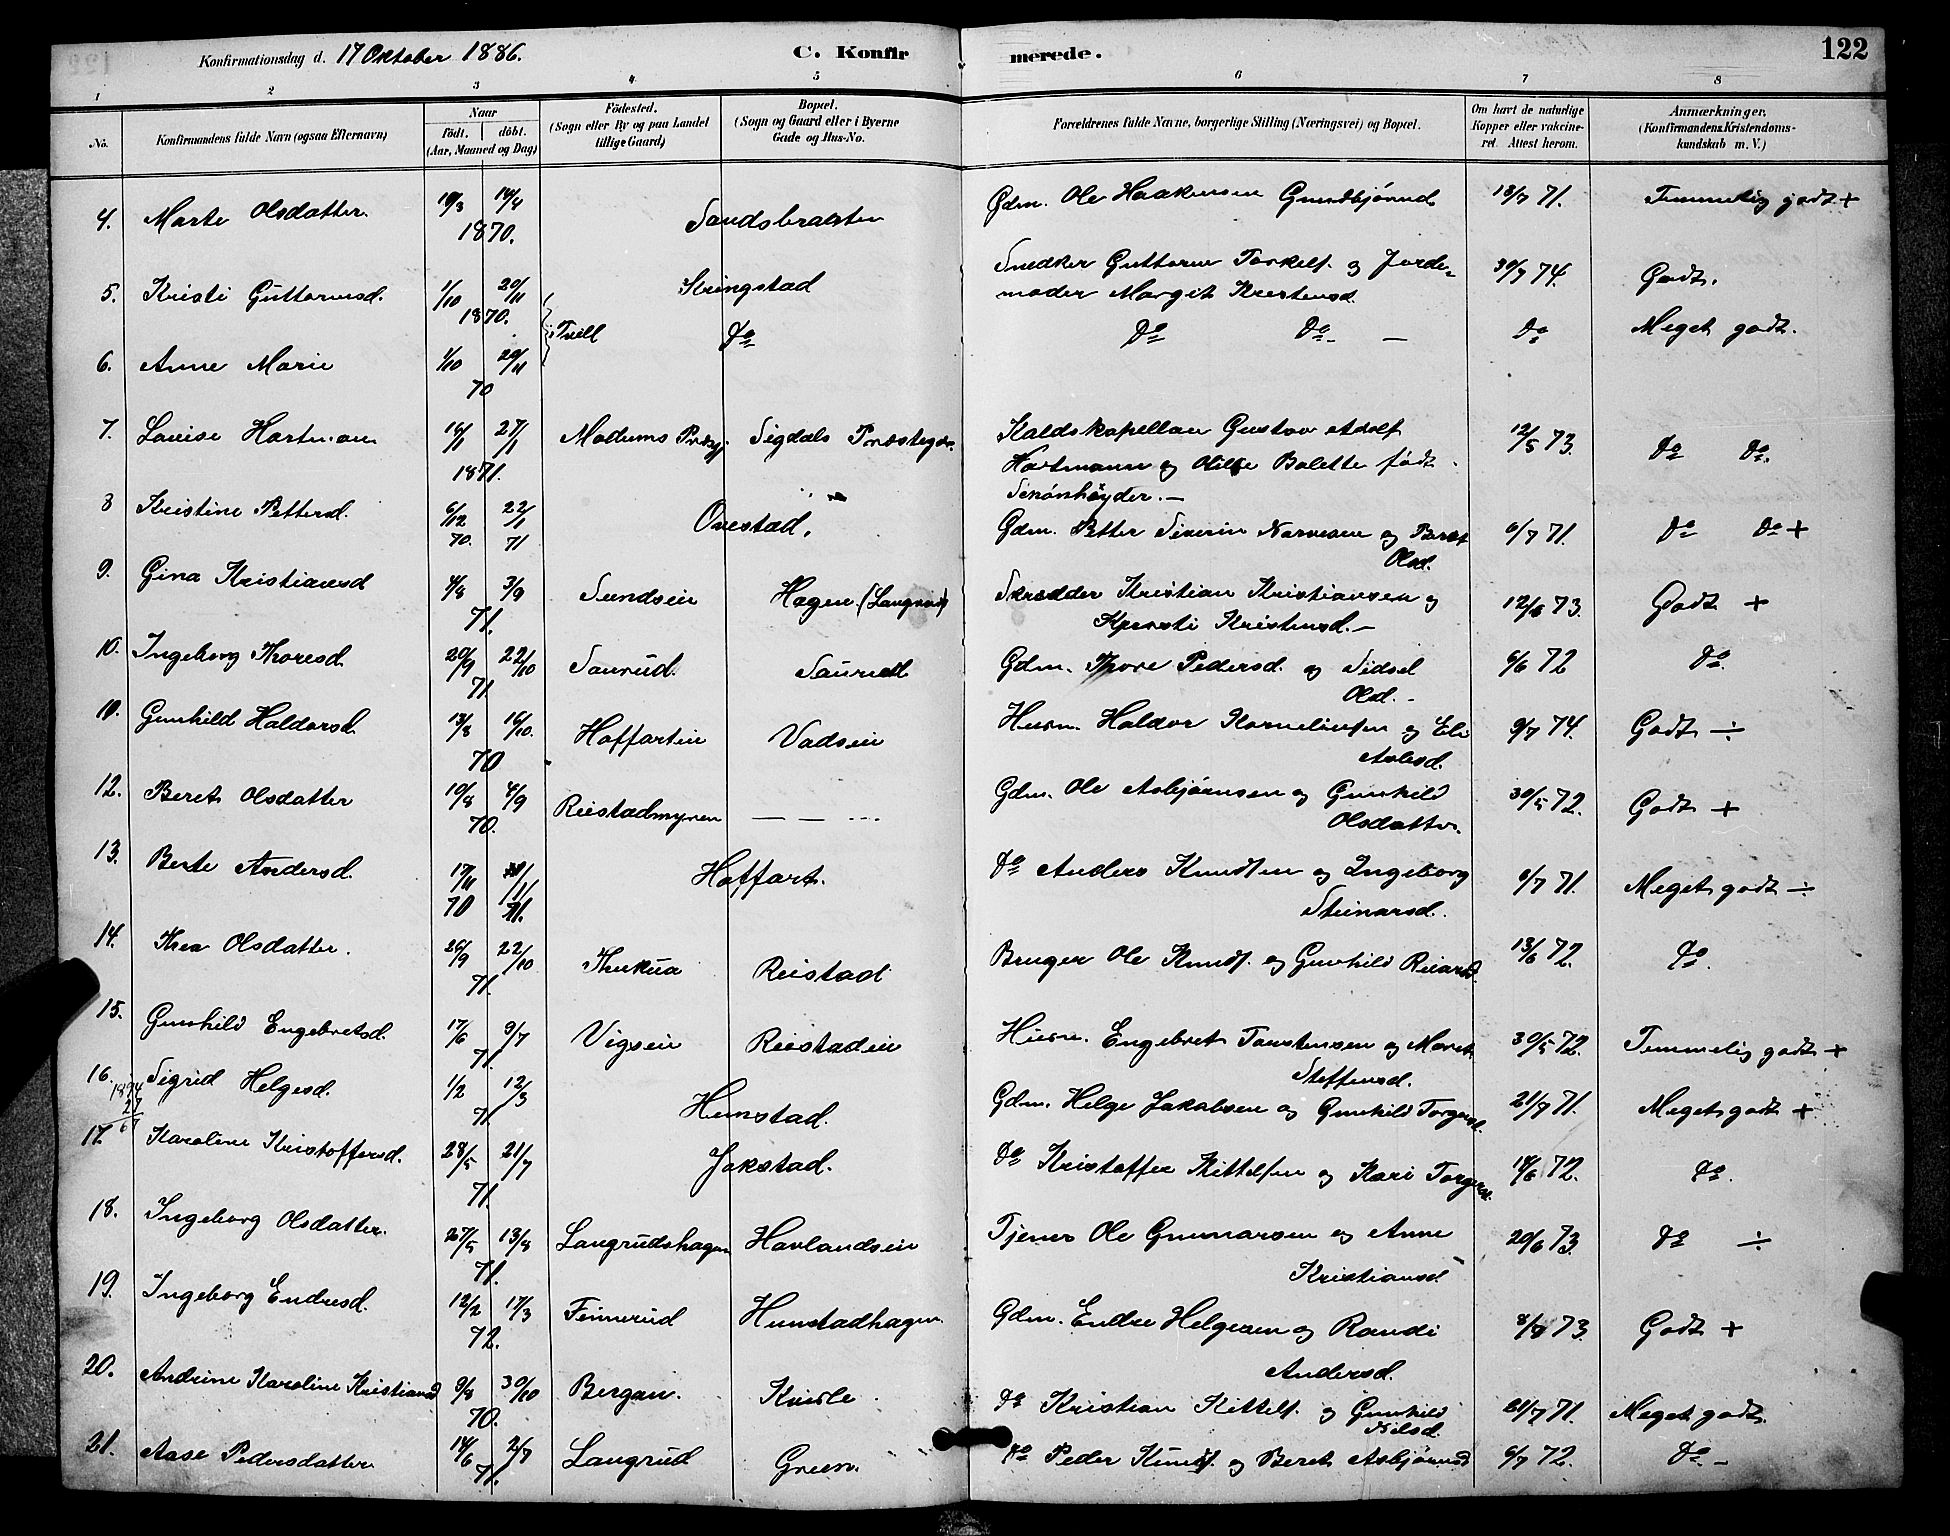 Konfirmationsdag d. 17 Oktober 1886. C. Konfirmerede. 122
1 2 3 4 5 6 7 8
No. Konfirmandens fulde Navn (ogsaa Efternavn) Naar født. døbt. (Aar, Maaned og Dag) Fødested. (Sogn eller By og paa Landet tillige Gaard) Bopæl. (Sogn og Gaard eller i Byerne Gade og Hus-No. Forældrenes fulde Navne, borgerlige Stilling (Næringsvei) og Bopæl. Om havt de naturlige Kopper eller vakcineret. Attest herom. Anmærkninger. (Konfirmandens Kristendomskundskab m. V.)
4. Marte Olsdatter 19/3 14/4 1870. Sandsbraaten Gdm. Ole Haakensen 18/7 71. Temmelig godt +
5. Kristi Guttormsd. 1/10 20/11 1870. Skringstad Snedker Guttorm Torkels. og Jordemoder Margit Kristensd. 30/7 74. Godt.
6. Anne Marie 1/10 20/11 70 Tvill Do Do Do Do Meget godt.
7. Louise Hartman 16/1 27/1 1871. Modums Præg. Sigdals Præsteg. Kaldskapellan Gustav Adolf Hartmann og Balette født 12/5 73. Do Do.
8 Kristine Pettersd. 6/12 70. 22/1 71 Ovestad. Gdm. Petter Severin Narvesen og Beret Olsd. 6/7 71. Do Do +
9. Gina Kristiansd 4/8 3/9 71. Sundsein Hagen (Langrud) Skredder Kristian Kristiansen og Kjersti Kristensd. 12/6 73. Godt +
10. Ingeborg Thoresd. 20/9 22/10 71. Saurud. Saurud Gdm. Thore Pedersd. og Sidsel Olsd. 6/6 72 Do.
10. Gunhild Haldorsd. 13/8 16/10. 70 Hoffartein Vadsein Husm. Haldor Kornelius og Eli Asled. 9/7 74. Godt ÷
12. Beret Olsdatter 19/8 4/9 70. Reistadmyren — — Gdm. Ole Asbjørnsen og Gunhild Olsdatter. 30/5 72. Godt +
13. Berte Andersd. 17/11 70 1/1 71. Hoffart. Do Anders Knudsen og Ingeborg Steinarsd. 6/7 71. Meget godt ÷
14. Thea Olsdatter. 26/9 22/10 71. Reistad Bruger Ole Knuds. og Gunhild Reiarsd. 13/6 72. Do.
15. Gunhild Engebretsd. 17/6 9/7 71. Vigsein Reistadein Husm. Engebret Torstensen og Marit Steffensd. 30/5 72. Temmelig godt +
16. Sigrid Helgesd. 1/2 12/3 71. Hunstad. Gdm. Helge Jakobsen og Gunhild Torgersd. 21/7 71. Meget godt +
17 Karoline Kristoffersd. 28/5 21/7 71. Jokstad. Do Kristoffer Kittelsen og Kari Torgersd. 18/6 72. Do.
18. Ingeborg Olsdatter. 27/5 13/8 71. Langrudshagen Havlandsein Tjener Ole Gunnarsen og Anne Kristiansd 20/6 73. Do ÷
19. Ingeborg Endresd. 12/2 17/3 72. Finnerud Hunstadhagen Gdm. Endre Helgesen og Randi Andersd. 8/7 73. Godt +
20. Andrine Karoline Kristiansd 9/8 30/10 70. Bergan. Kvisle Do Kristian Kittels. og Gunhild Nilsd. 21/7 71. Meget godt.
21. Aase Pedersdatter 14/6 2/7 71. Langrud Green. Do Peder Knuds. og Beret Asbjørnsd 6/7 72. Do.